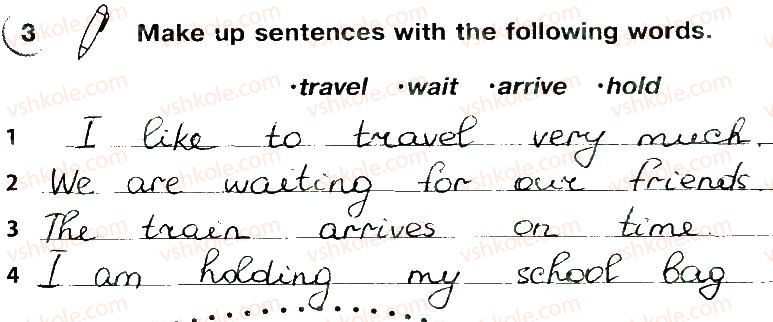 3 Make up sentences with the following words.
•travel •wait •arrive •hold
1 I like to travel very much.
2 We are waiting for our friends
3 The train arrives on time.
4 I am holding my school bag